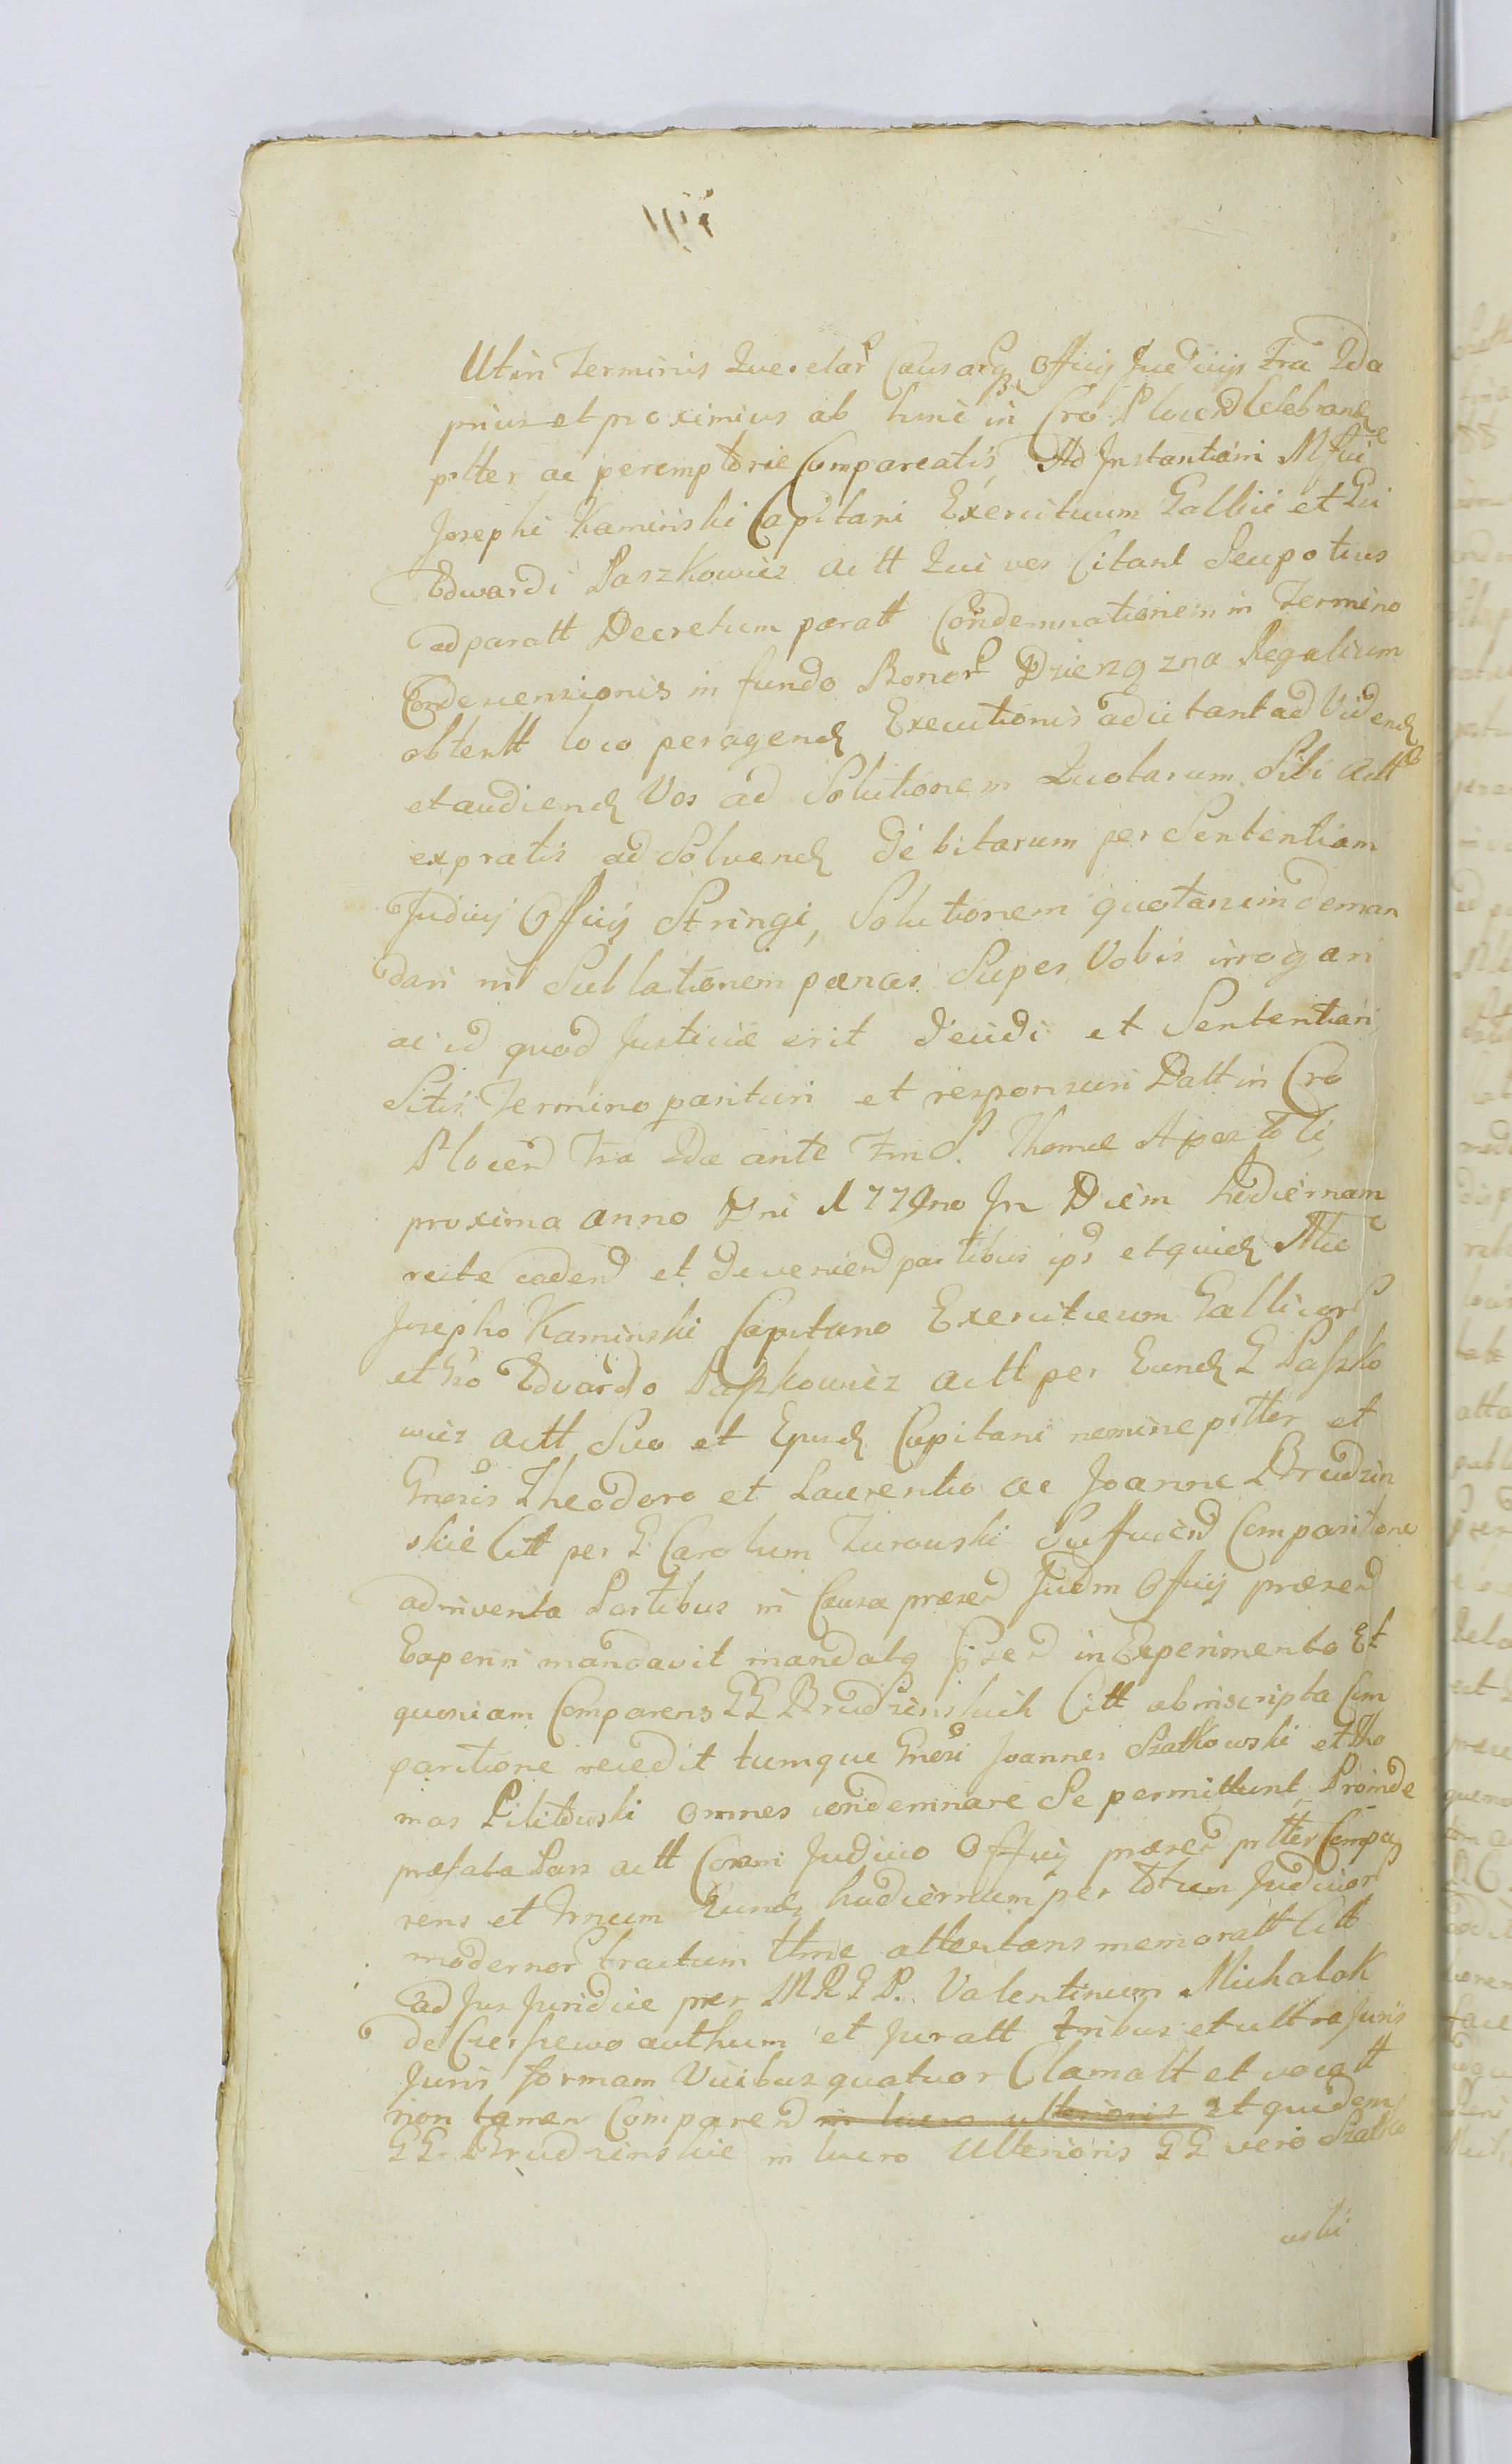 Ut in Terminis Querelar Causarq Officij Judicijs Fra 2da
prius et proximius ab hinc in Cro Plocen Celebrand
psltter ac peremptorie Compareatis, Ad Instantiam Mfci
Josephi Kaminski Capitani Exercituum Gallici et Gi
Edwardi Paszkowicz actt Qui vos Citant Seu potius
ad paratt Decretum paratt Condemnationem in Termino
Condescensionis in fundo Bonor Dziengzna Regalium
obtentt loco peragend Executionis adcitant ad Vidend
et audiend Vos ad Solutionem Quotarum Sibi Actt
expratis ad Solvend debitarum per Sententiam
Judicij Officij Stringi, Solutionem quotarum deman
dari in Sublationem paenas Super Vobis irrogari
ac id quod Justiciae erit decidi et Sententiari
Sitis Termino parituri et responsuri Datt in Cro
Plocen Fra 2da ante Fm S. Thomae Apostoli,
proxima anno Dni 1779no In Diem hodiernam
recte caden et devenien partibus ipsis et quid Mco
Josepho Kaminski Capitano Exercituum Gallicor
et Gso Edvardo Paszkowicz actt per Eund G Paszko
wicz actt Suo et Ejusd Capitani nemine psltter et
Gnosis Theodoro et Laurentio ac Joanne Brudzin
skie Citt per G Carolum Zurowski Sufficien Comparitione
adinventa Partibus in Causa praesen Judm Officij praesen
Experiri mandavit mandatq praesen in Experimento Et
quoniam Comparens GG Brudzinskich Citt ab inscripta Com
paritione recedit tumque Gnosi Joannes Szatkowski et Tho
mas Pilitowski omnes condemnare Se permittunt, Proinde
praefata Pars actt Coram Judicio Officij praesen psltter Compa
rens et Trnum Eund hodiernum per totum Judicior
modernor tractum ttme attentans memoratt Citt
ad Jus Juridice per MRGP. Valentinum Michalak
de Cierszewo authum et Juratt tribus et ultra Juris
Juris formam Vicibus quatuor Clamatt et vocatt
non tamen Comparen in lucro ulterioris et quidem
GG. Brudzinskie in lucro Ulterioris GG vero Szatko
wski